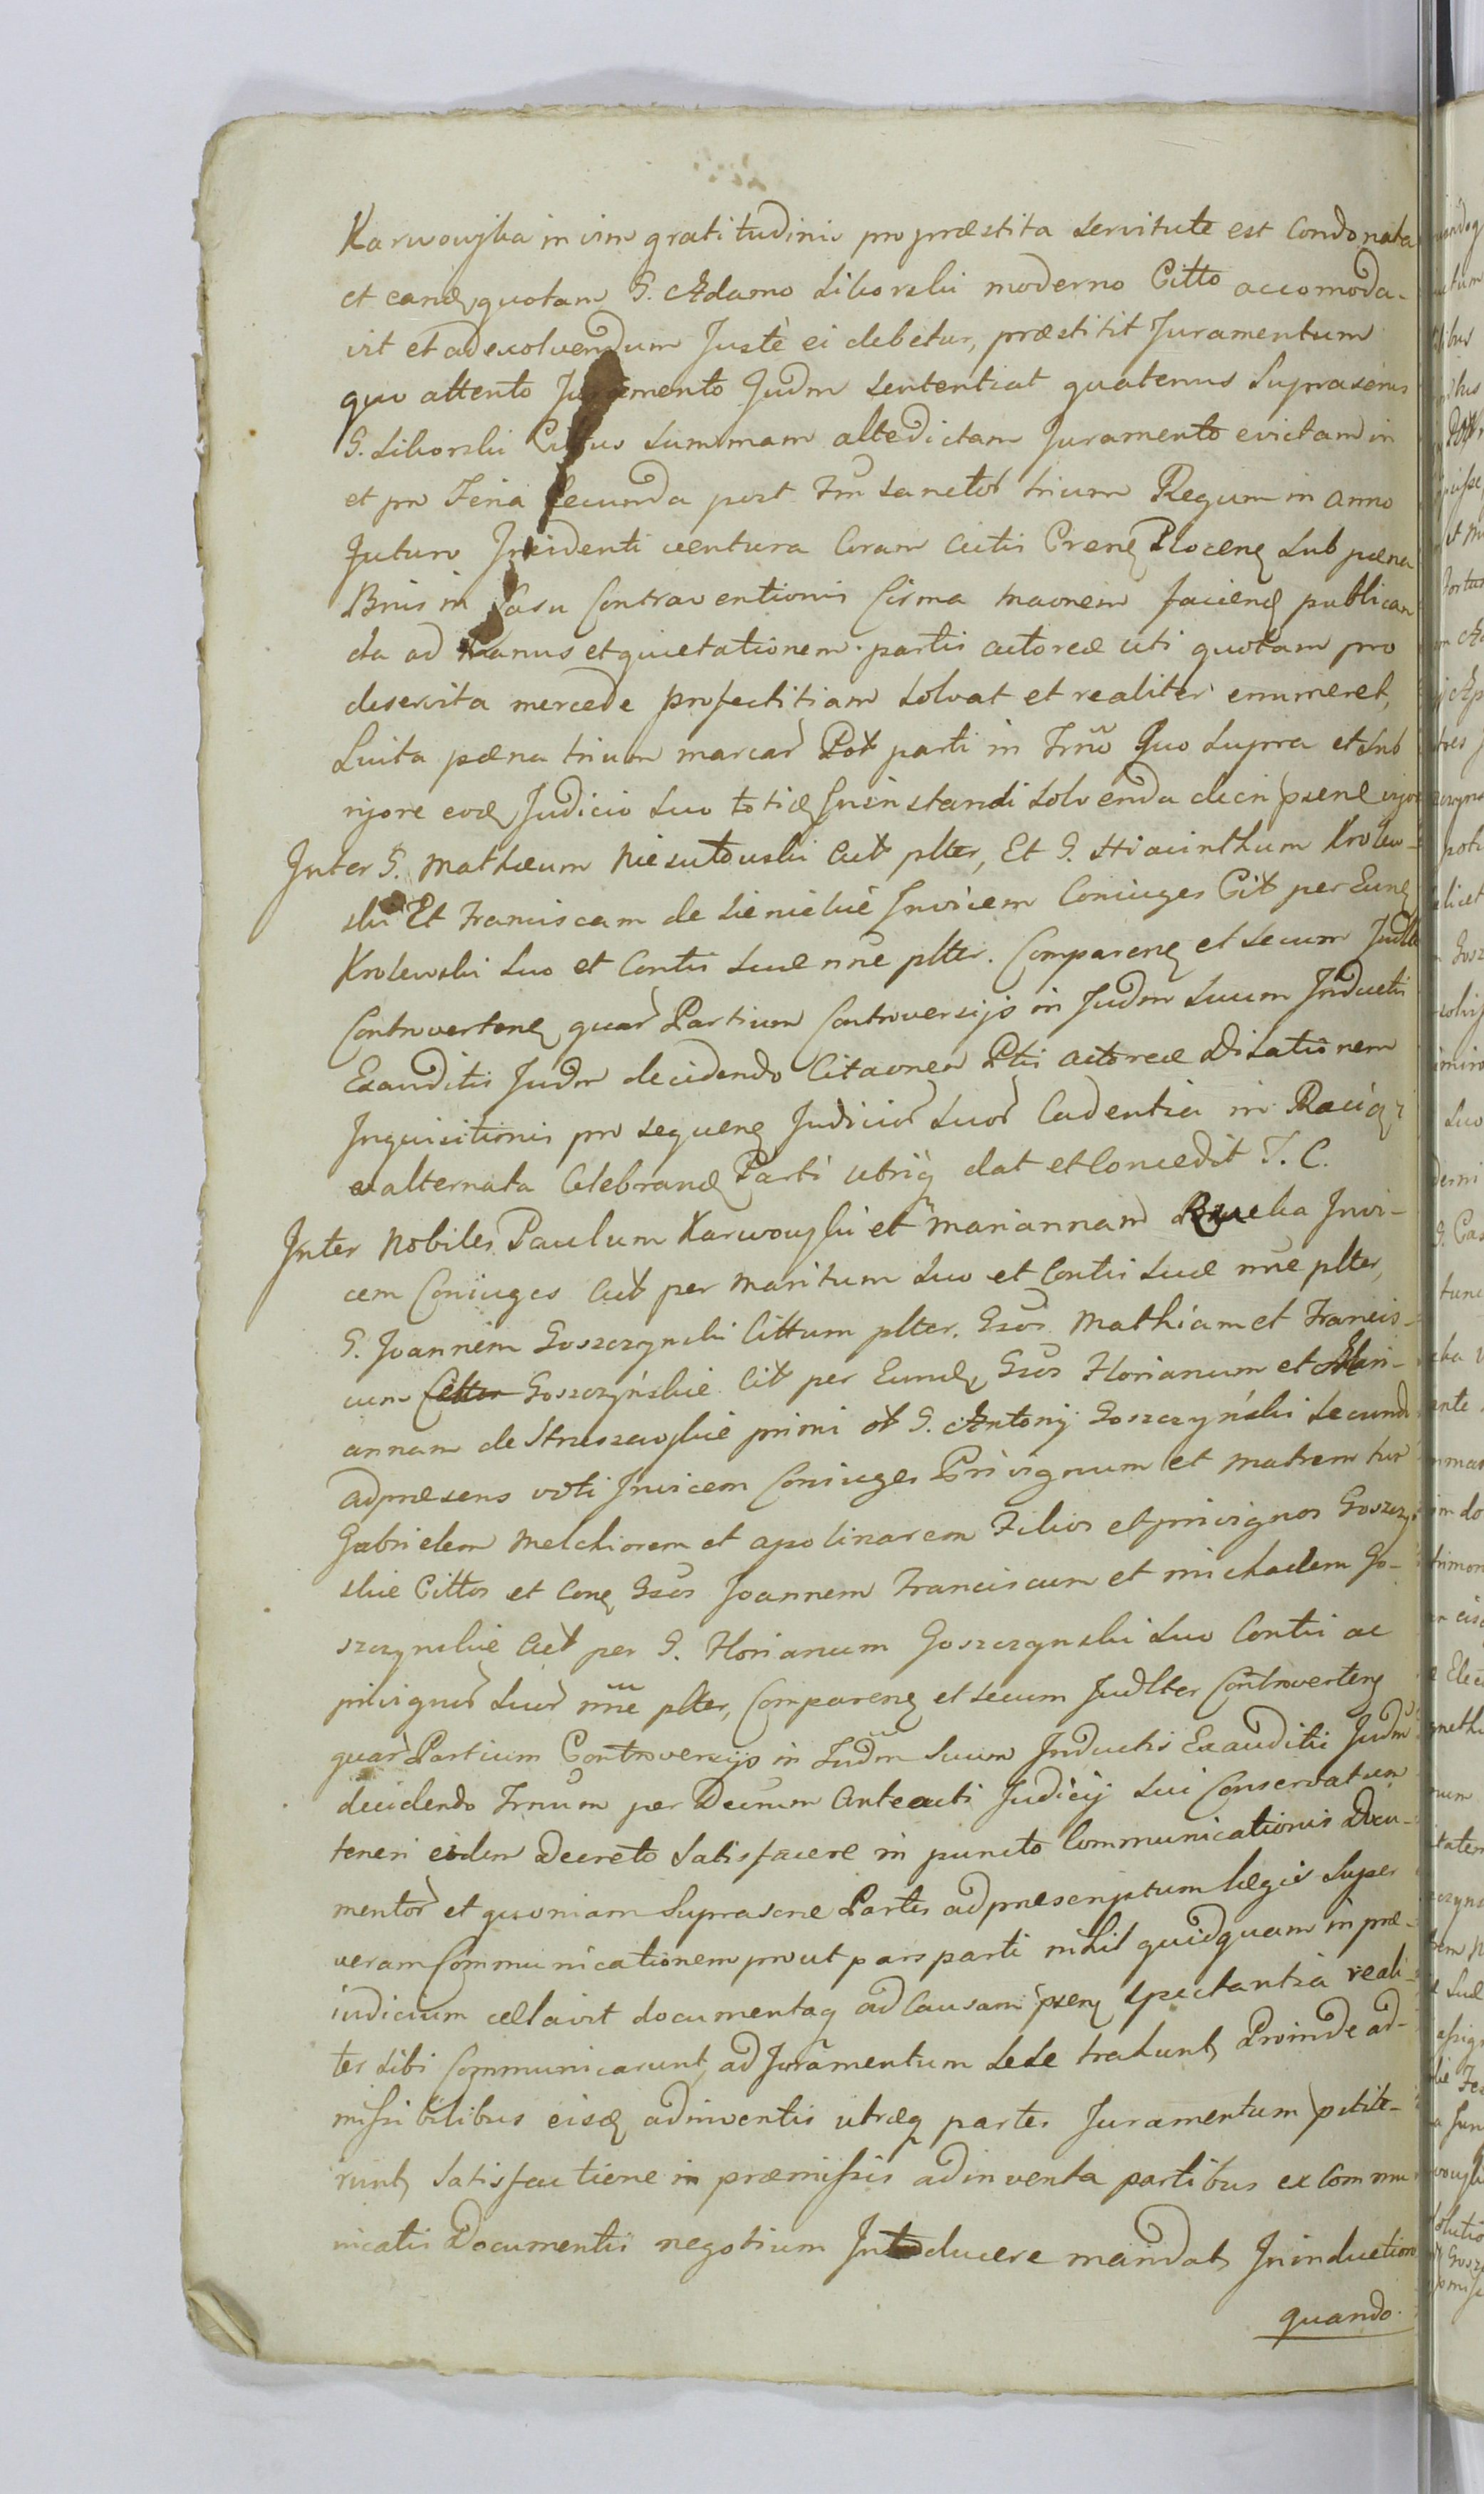 Karwowska in vim gratitudinis pro præstita servitute est condonata
et eand quotam G. Adamo Sikorski moderno Citto accomoda-
vit et ad exolvendum Justè ei debetur, præstitit Juramentum
quo attento Juramento Judm sententiat quatenus Suprascrus
G. Sikorski Cittus Summam altedictam Juramento evictam in
et pro Feria Secunda post Fm Sanctor trium Regum in anno
futuro Incidenti ventura Coram Actis Cren Plocen Sub pæna
Bnis in Casu Contraventionis Cisma maonem faciend publican
da ad manus et quietationem partis actoreæ uti quotam pro
deservita mercede profectitiam Solvat et realiter enumeret,
Luita pæna trium marcar Pol parti in Trno Quo Supra et Sub
rigore eod Judicio Suo toties solvenda decri psene vigore
Inter G. Mathæum Niesutowski Act plter, Et G. Hiacinthum Krolew-
ski Et Franciscam de Sienickie Invicem Coniuges Cit per Eund
Krolewski Suo et Contis Suæ nne plter. Comparen et Secum Judlr
Controverten quar Partium Controversijs in Judm Suum Inductis
Exauditis Judm decidendo Citaonem Ptis actoreæ Dilationem
Inquisitionis pro sequen Judicior Suor Cadentia in Raciąż
ex alternata Celebrand Parti utriq dat et Concedit T. C.
Inter Nobiles Paulum Karwowski et Mariannam Invi-
cem Coniuges Act per maritum Suo et Contis Suæ nne plter,
G. Joannem Goszczynski Cittum plter. Gsos Mathiam et Francis-
cum Goszczyńskie Cit per Eund, Gsos Florianum et Mari-
annam de Strzeszewskie primi ol G. Antonij Goszczyński Secundi
ad præsens voti Invicem Coniuges Privignum et matrem tum
Gabrielem Melchiorem et Apolinarem Filios et privignos Goszczyn
skie Cittos et Con Gsos Joannem Franciscum et Michaelem Go-
szczynskie Act per G. Florianum Goszczynski Suo Contis ac
privignor Suor nne plter, Comparen et Secum Judlter Controverten
quar Partium Controversijs in Judm Suum Inductis Exauditis Judm
decidendo Trnum per Decrum Anteacti Judicij Sui Conservatum
teneri eidem Decreto Satisfacere in puncto Communicationis Docu-
mentor et quoniam Suprascræ Partes ad præscriptum Lægis Super
veram Communicationem prout pars parti nihil quidquam in præ-
iudicium cellavit documentaq ad Causam psen Spectantia reali-
ter Sibi Communicarunt, ad Juramentum Sese trahunt, Proinde ad-
missibilibus eisd adinventis utræq partes Juramentum petite-
runt, Satisfactione in præmissis adinventa partibus ex Commu
nicatis Documentis negotium Introducere mandat, In inductione
quando